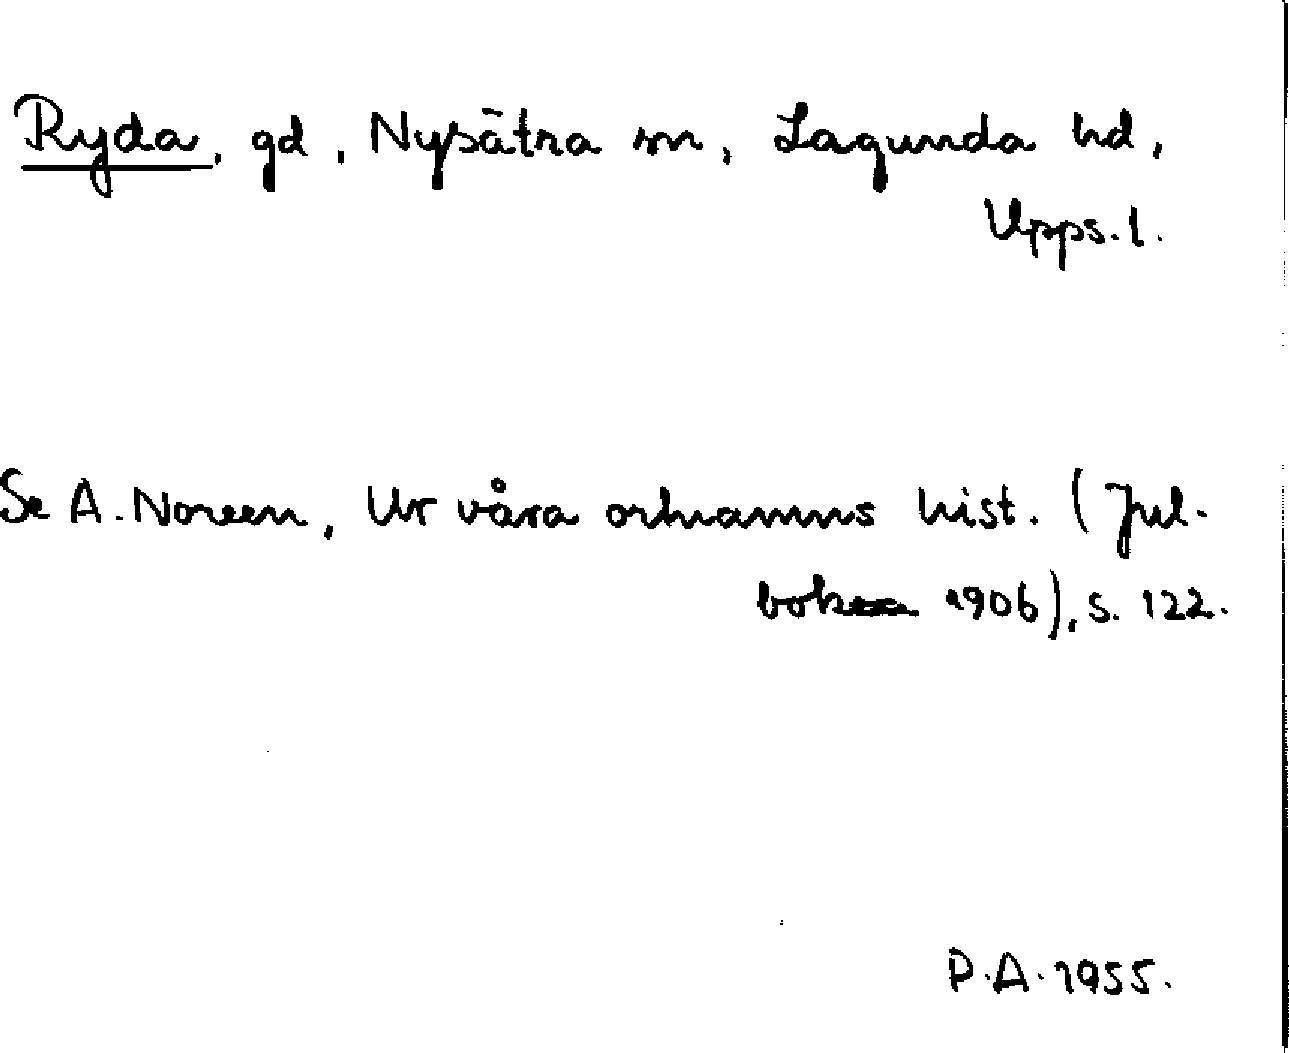 Ryda, gd, Nysätra sn, Lagunda hd,
Upps. l.
Se A. Noreen, Ur våra ortnamns hist. (Jul-
bok 1906), s. 122.
P.A. 1955.